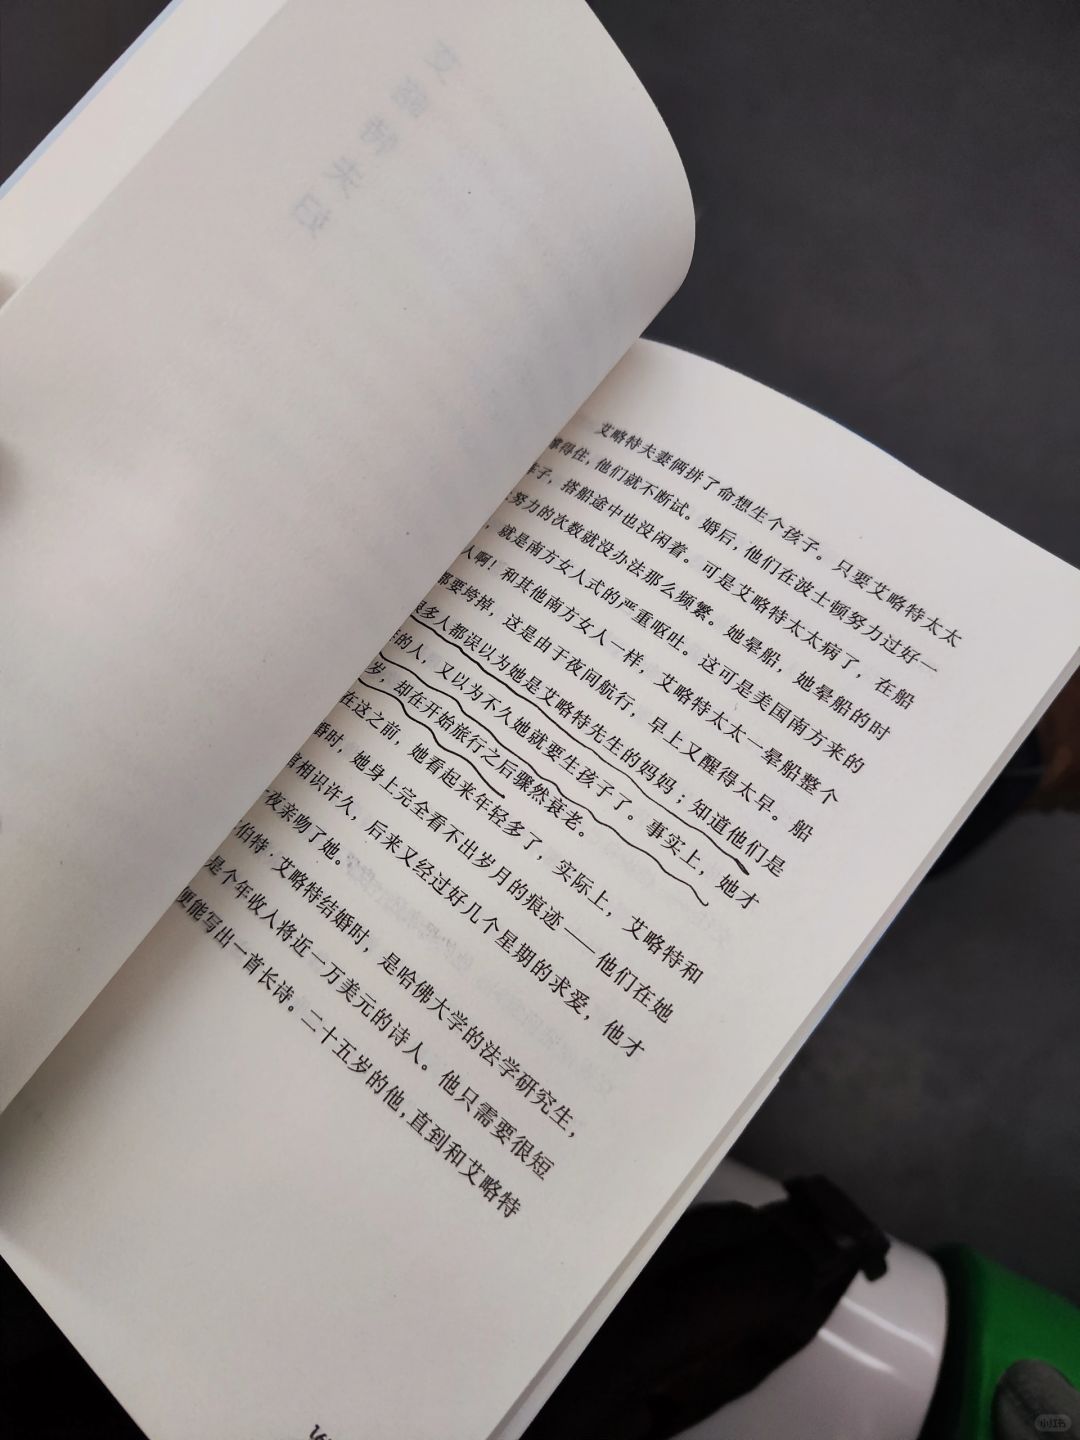 艾略特夫妇
艾略特夫妻俩拼了命想生个孩子。只要艾略特太太
得住，他们就不断试。婚后，他们在波士顿努力过好一
阵子，搭船途中也没闲着。可是艾略特太太病了，在船
努力的次数就没办法那么频繁。她晕船，她晕船的时
，就是南方女人式的严重呕吐。这可是美国南方来的
人啊！和其他南方女人一样，艾略特太太一晕船整个
都要垮掉，这是由于夜间航行，早上又醒得太早。船
很多人都误以为她是艾略特先生的妈妈；知道他们是
的人，又以为不久她就要生孩子了。事实上，她才
岁，却在开始旅行之后骤然衰老。
在这之前，她看起来年轻多了，实际上，艾略特和
婚时，她身上完全看不出岁月的痕迹——他们在她
相识许久，后来又经过好几个星期的求爱，他才
夜亲吻了她。
伯特·艾略特结婚时，是哈佛大学的法学研究生，
是个年收入将近一万美元的诗人。他只需要很短
便能写出一首长诗。二十五岁的他，直到和艾略特
小红书